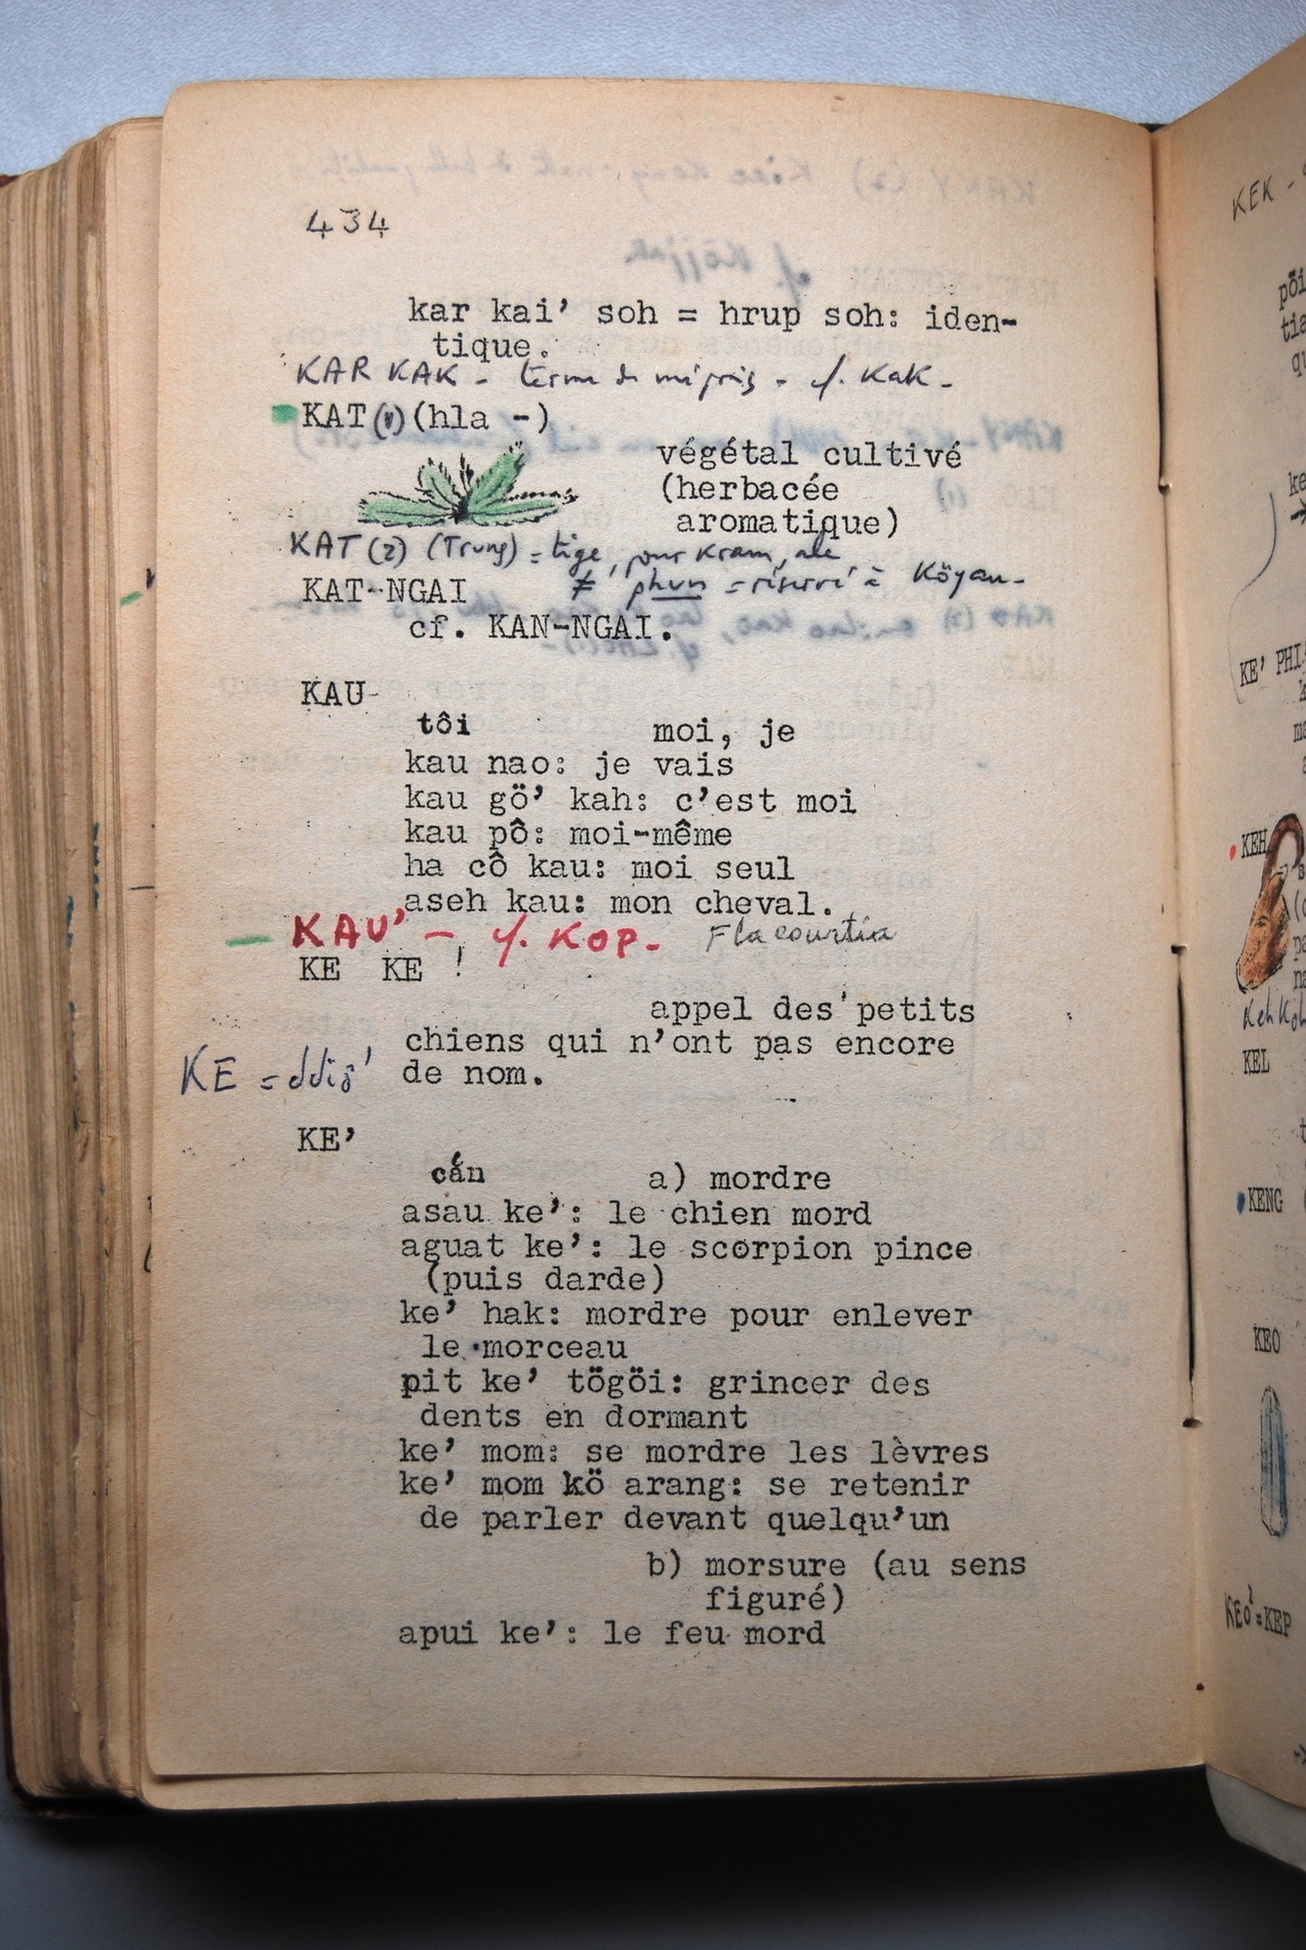 434
kar kai' soh = hrup soh: iden-
tique.
KAR KAK - terme de mépris - cf. Kak -
KAT (1) (hla -)
végétal cultivé
(herbacée
aromatique)
KAT (2) (Trung) = tige, pour Kram, ale
≠ phun = réservé à Köyau -
KAT-NGAI
cf. KAN-NGAI.
KAU
tôi moi, je
kau nao: je vais
kau gö' kah: c'est moi
kau pô: moi-même
ha cô kau: moi seul
aseh kau: mon cheval.
KAU' - cf. KOP - Flacourtia
KE KE !
appel des petits
chiens qui n'ont pas encore
de nom.
KE =
KE'
cắn a) mordre
asau ke': le chien mord
aguat ke': le scorpion pince
(puis darde)
ke' hak: mordre pour enlever
le morceau
pit ke' tögöi: grincer des
dents en dormant
ke' mom: se mordre les lèvres
ke' mom kö arang: se retenir
de parler devant quelqu'un
b) morsure (au sens
figuré)
apui ke': le feu mord
KEK -
KE' PHI
KEH
KEL
KENG
KEO
KEO' = KEP